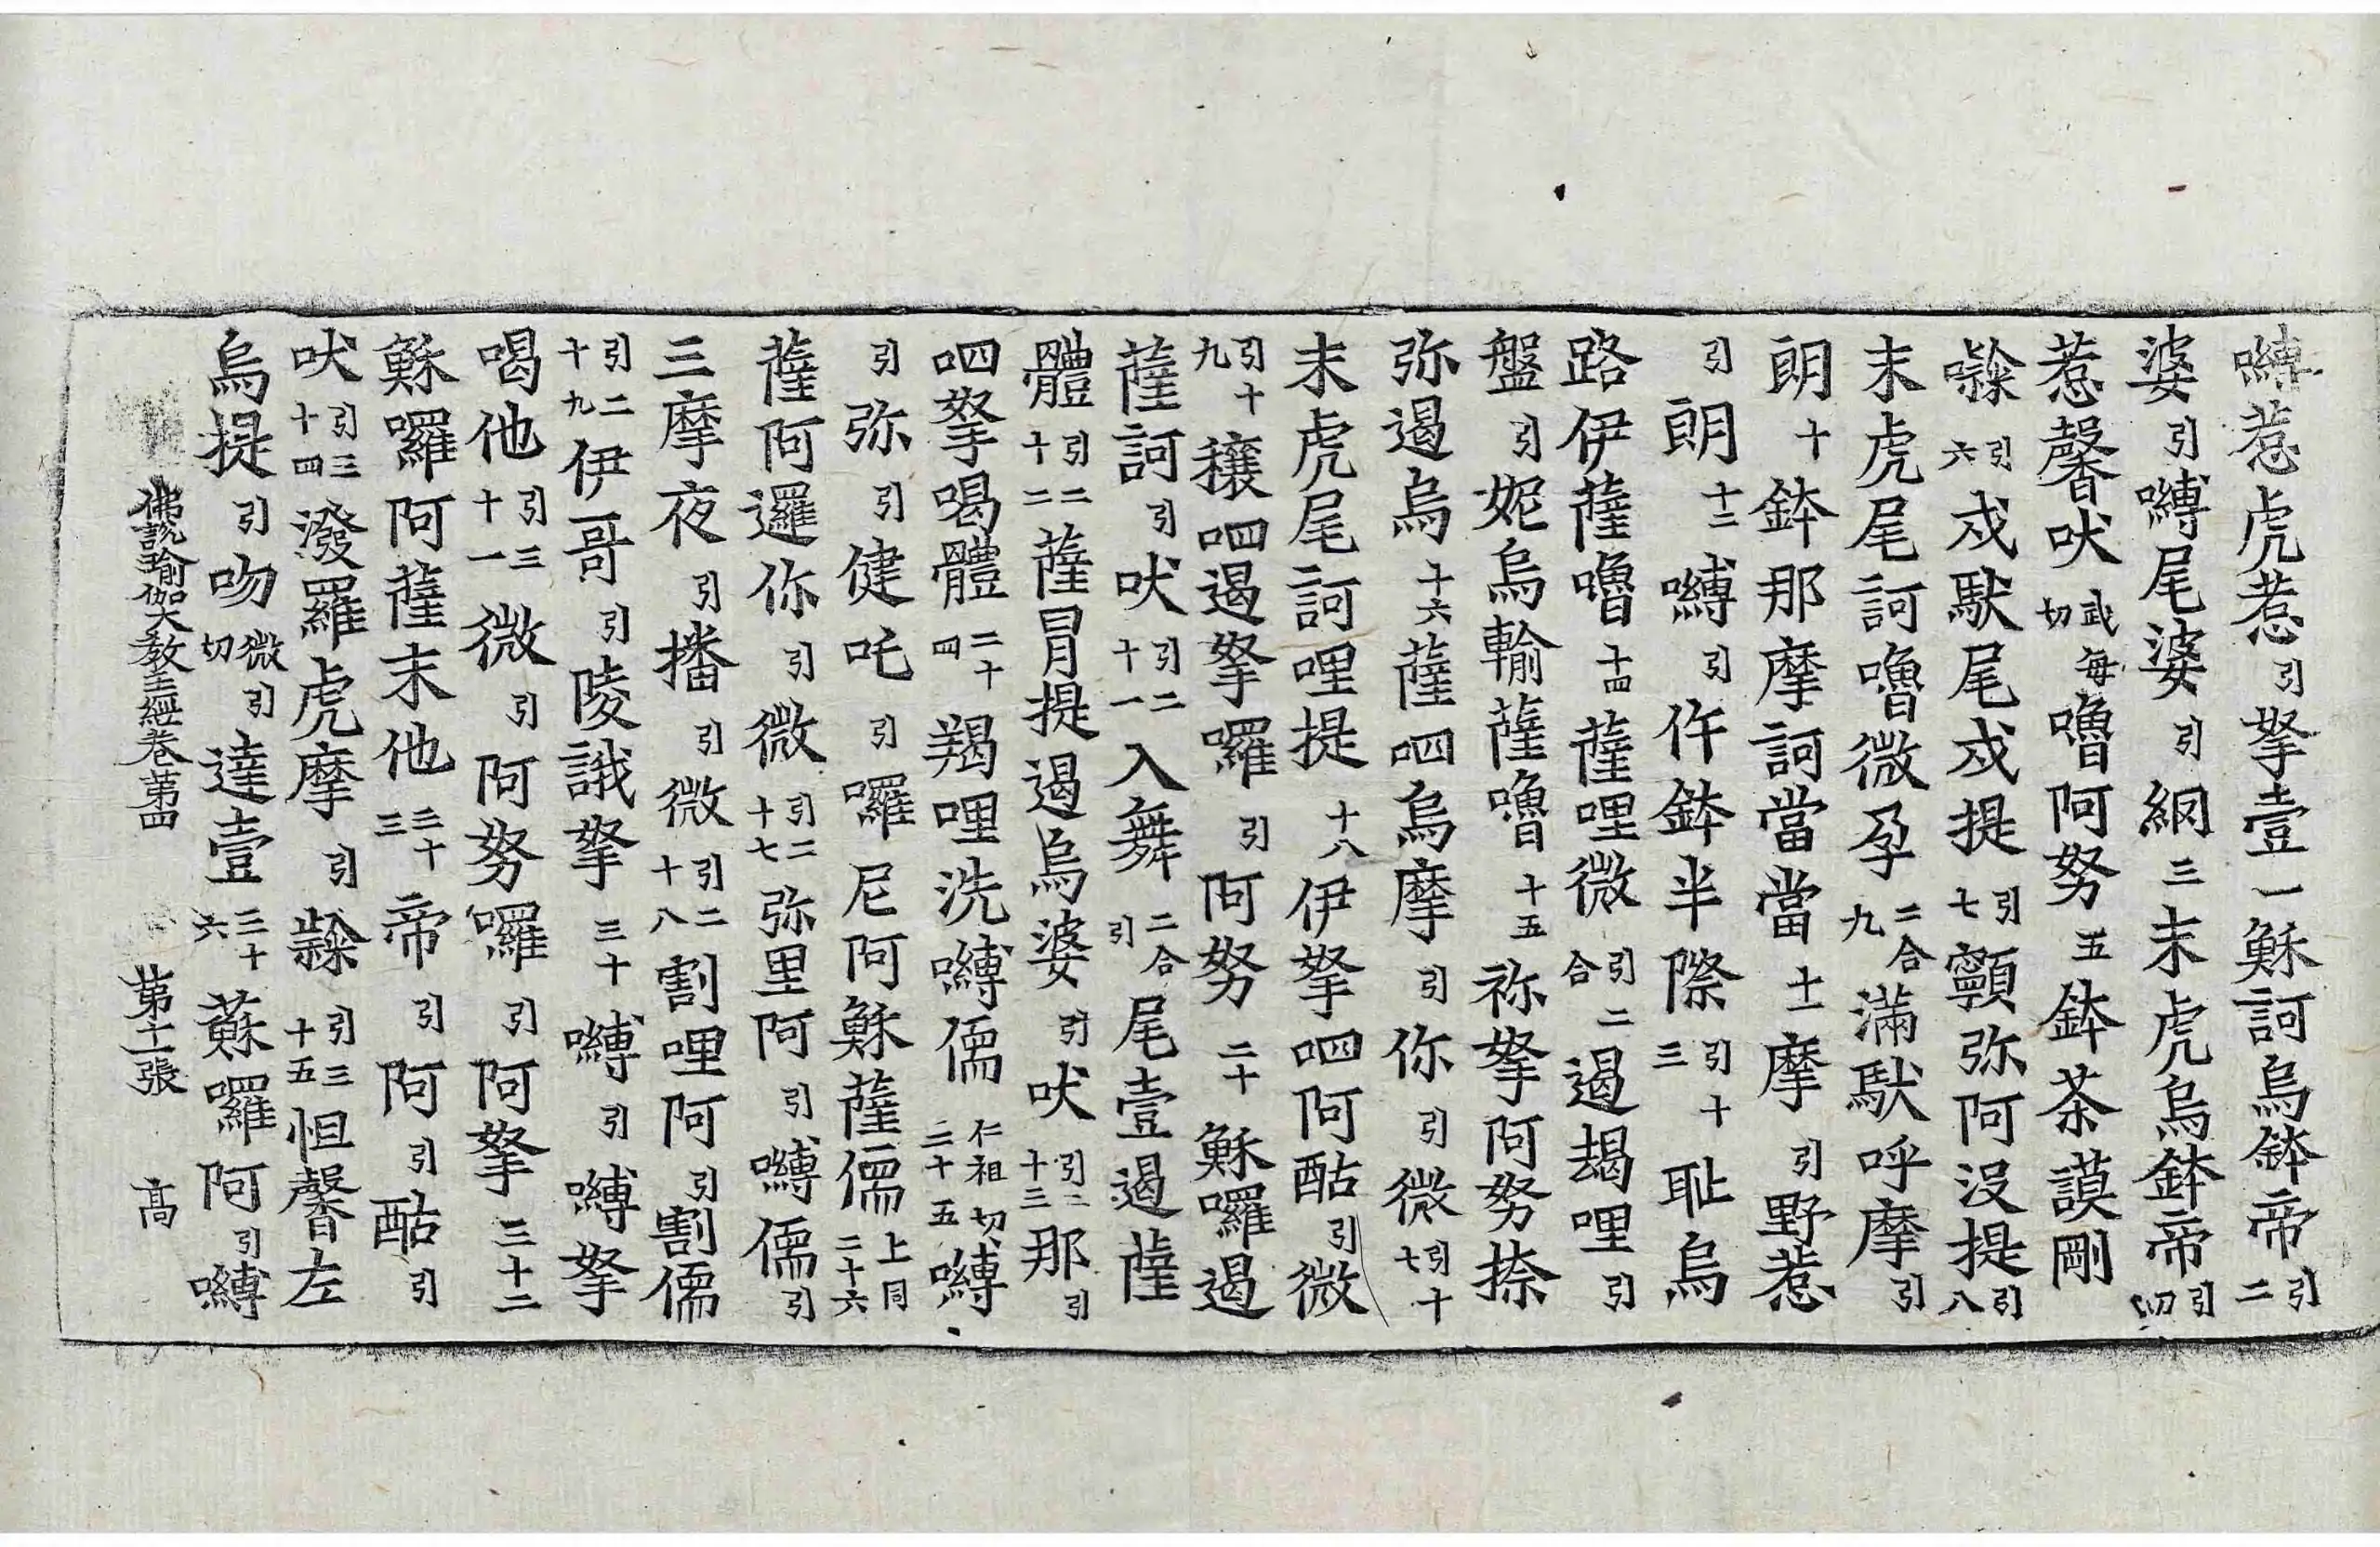 嚩惹虎惹引拏壹一穌訶烏鉢帝引二
婆引嚩尾婆引網三末虎烏鉢帝引四
惹馨吠武每切嚕阿努五鉢荼謨剛
引六戍馱尾戍提引七顐弥阿沒提引八
末虎尾訶嚕微孕二合九滿馱呼摩引
朗十鉢那摩訶當當十一摩引野惹
引朗十二嚩引仵鉢半際引十三耻烏
路伊薩嚕十四薩哩微引二合遏朅哩引
盤引妮烏輸薩嚕十五祢拏阿努捺
弥遏烏十六薩呬烏摩引你引微引十七
末虎尾訶哩提十八伊拏呬阿酤引微
引十九穰呬遏拏囉引阿努二十穌囉遏
薩訶引吠引二十一入舞二合引尾壹遏薩
體引二十二薩冐提遏烏婆引吠引二十三那引
呬拏喝體二十四羯哩洗嚩儒仁祖切二十五嚩
引弥引健吒引囉尼阿穌薩儒上同二十六
薩阿邏你引微引二十七弥里阿引嚩儒引
三摩夜引播引微引二十八割哩阿引割儒
引二十九伊哥引陵誐拏三十嚩引嚩拏
喝他引三十一微引阿努囉引阿拏三十二
穌囉阿薩末他三十三帝引阿引酤引
吠引三十四潑羅虎摩引引三十五怛馨左
烏提引吻微切引達壹三十六蘇囉阿引嚩
佛說瑜伽大教王經卷第四 第十一張 高